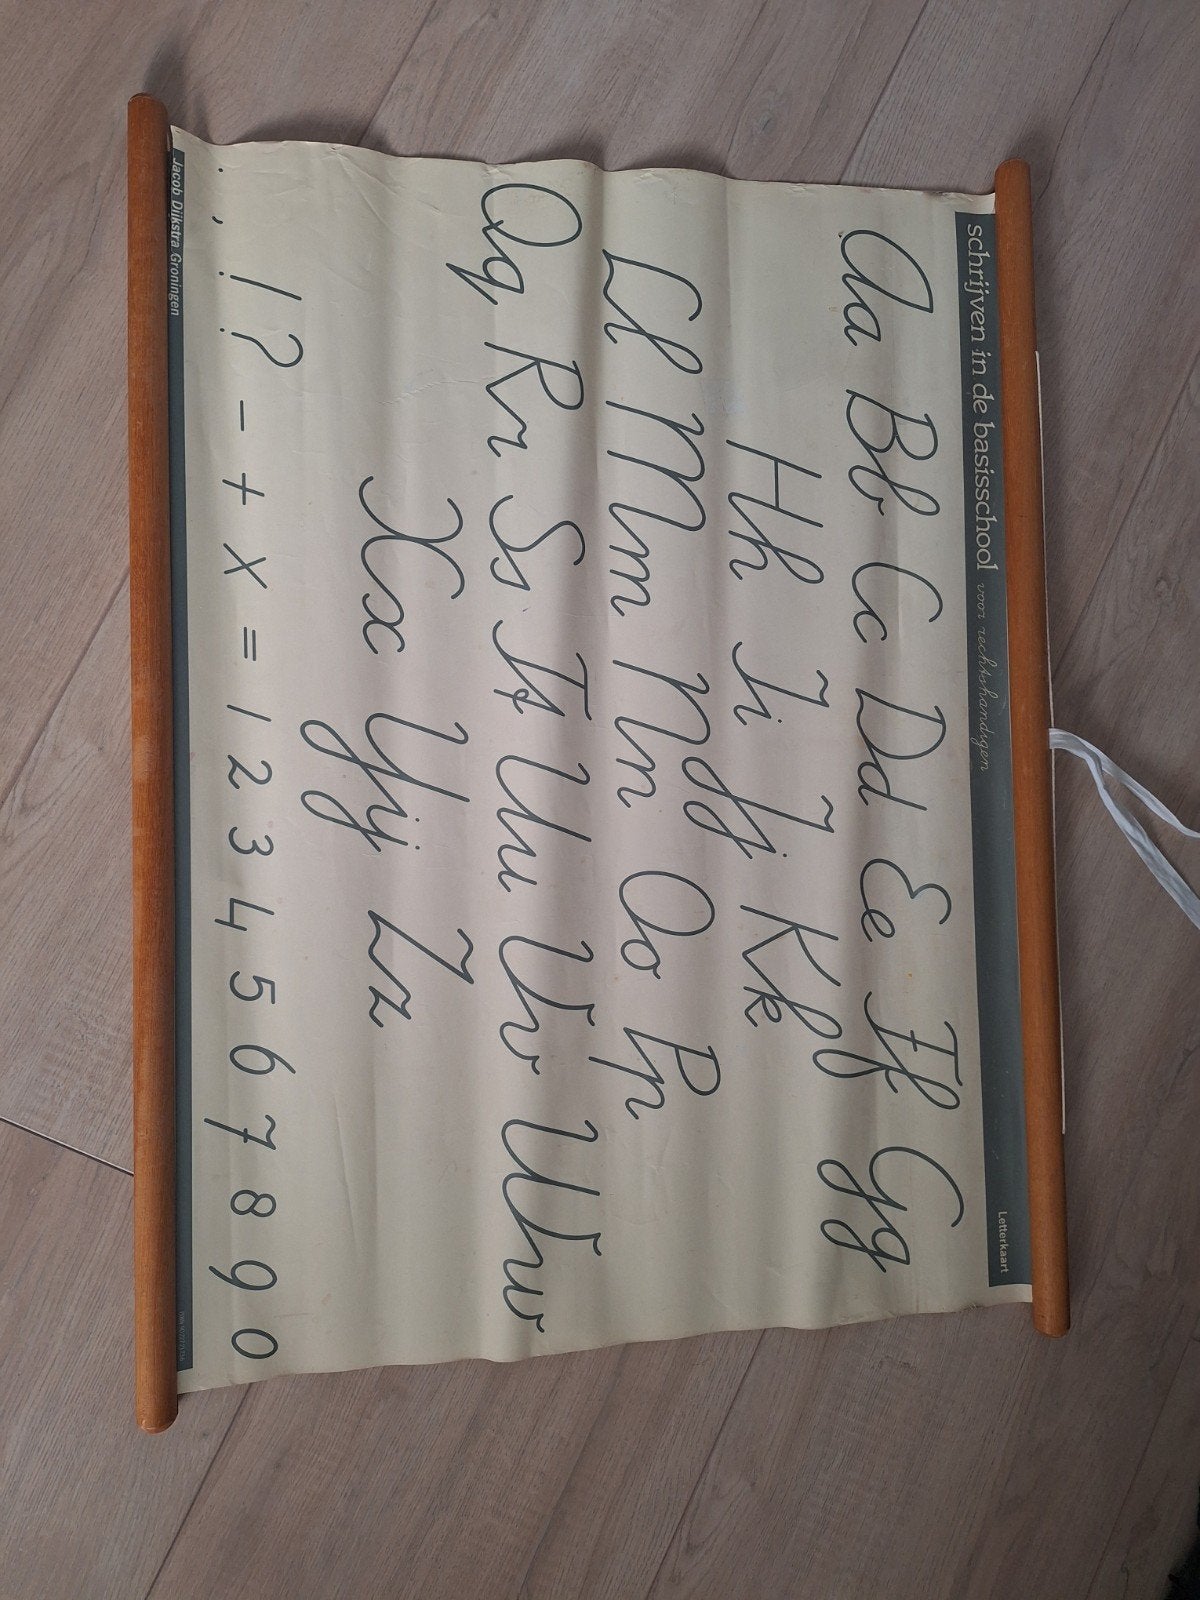 schrijven in de basisschool voor rechtshandigen
Letterkaart
Aa Bb Cc Dd Ee Ff Gg
Hh Ii Jj Kk
Ll Mm Nn Oo Pp
Qq Rr Ss Tt Uu Vv Ww
Xx IJij Zz
. , ! ? - + x = 1 2 3 4 5 6 7 8 9 0
Jacob Dijkstra Groningen